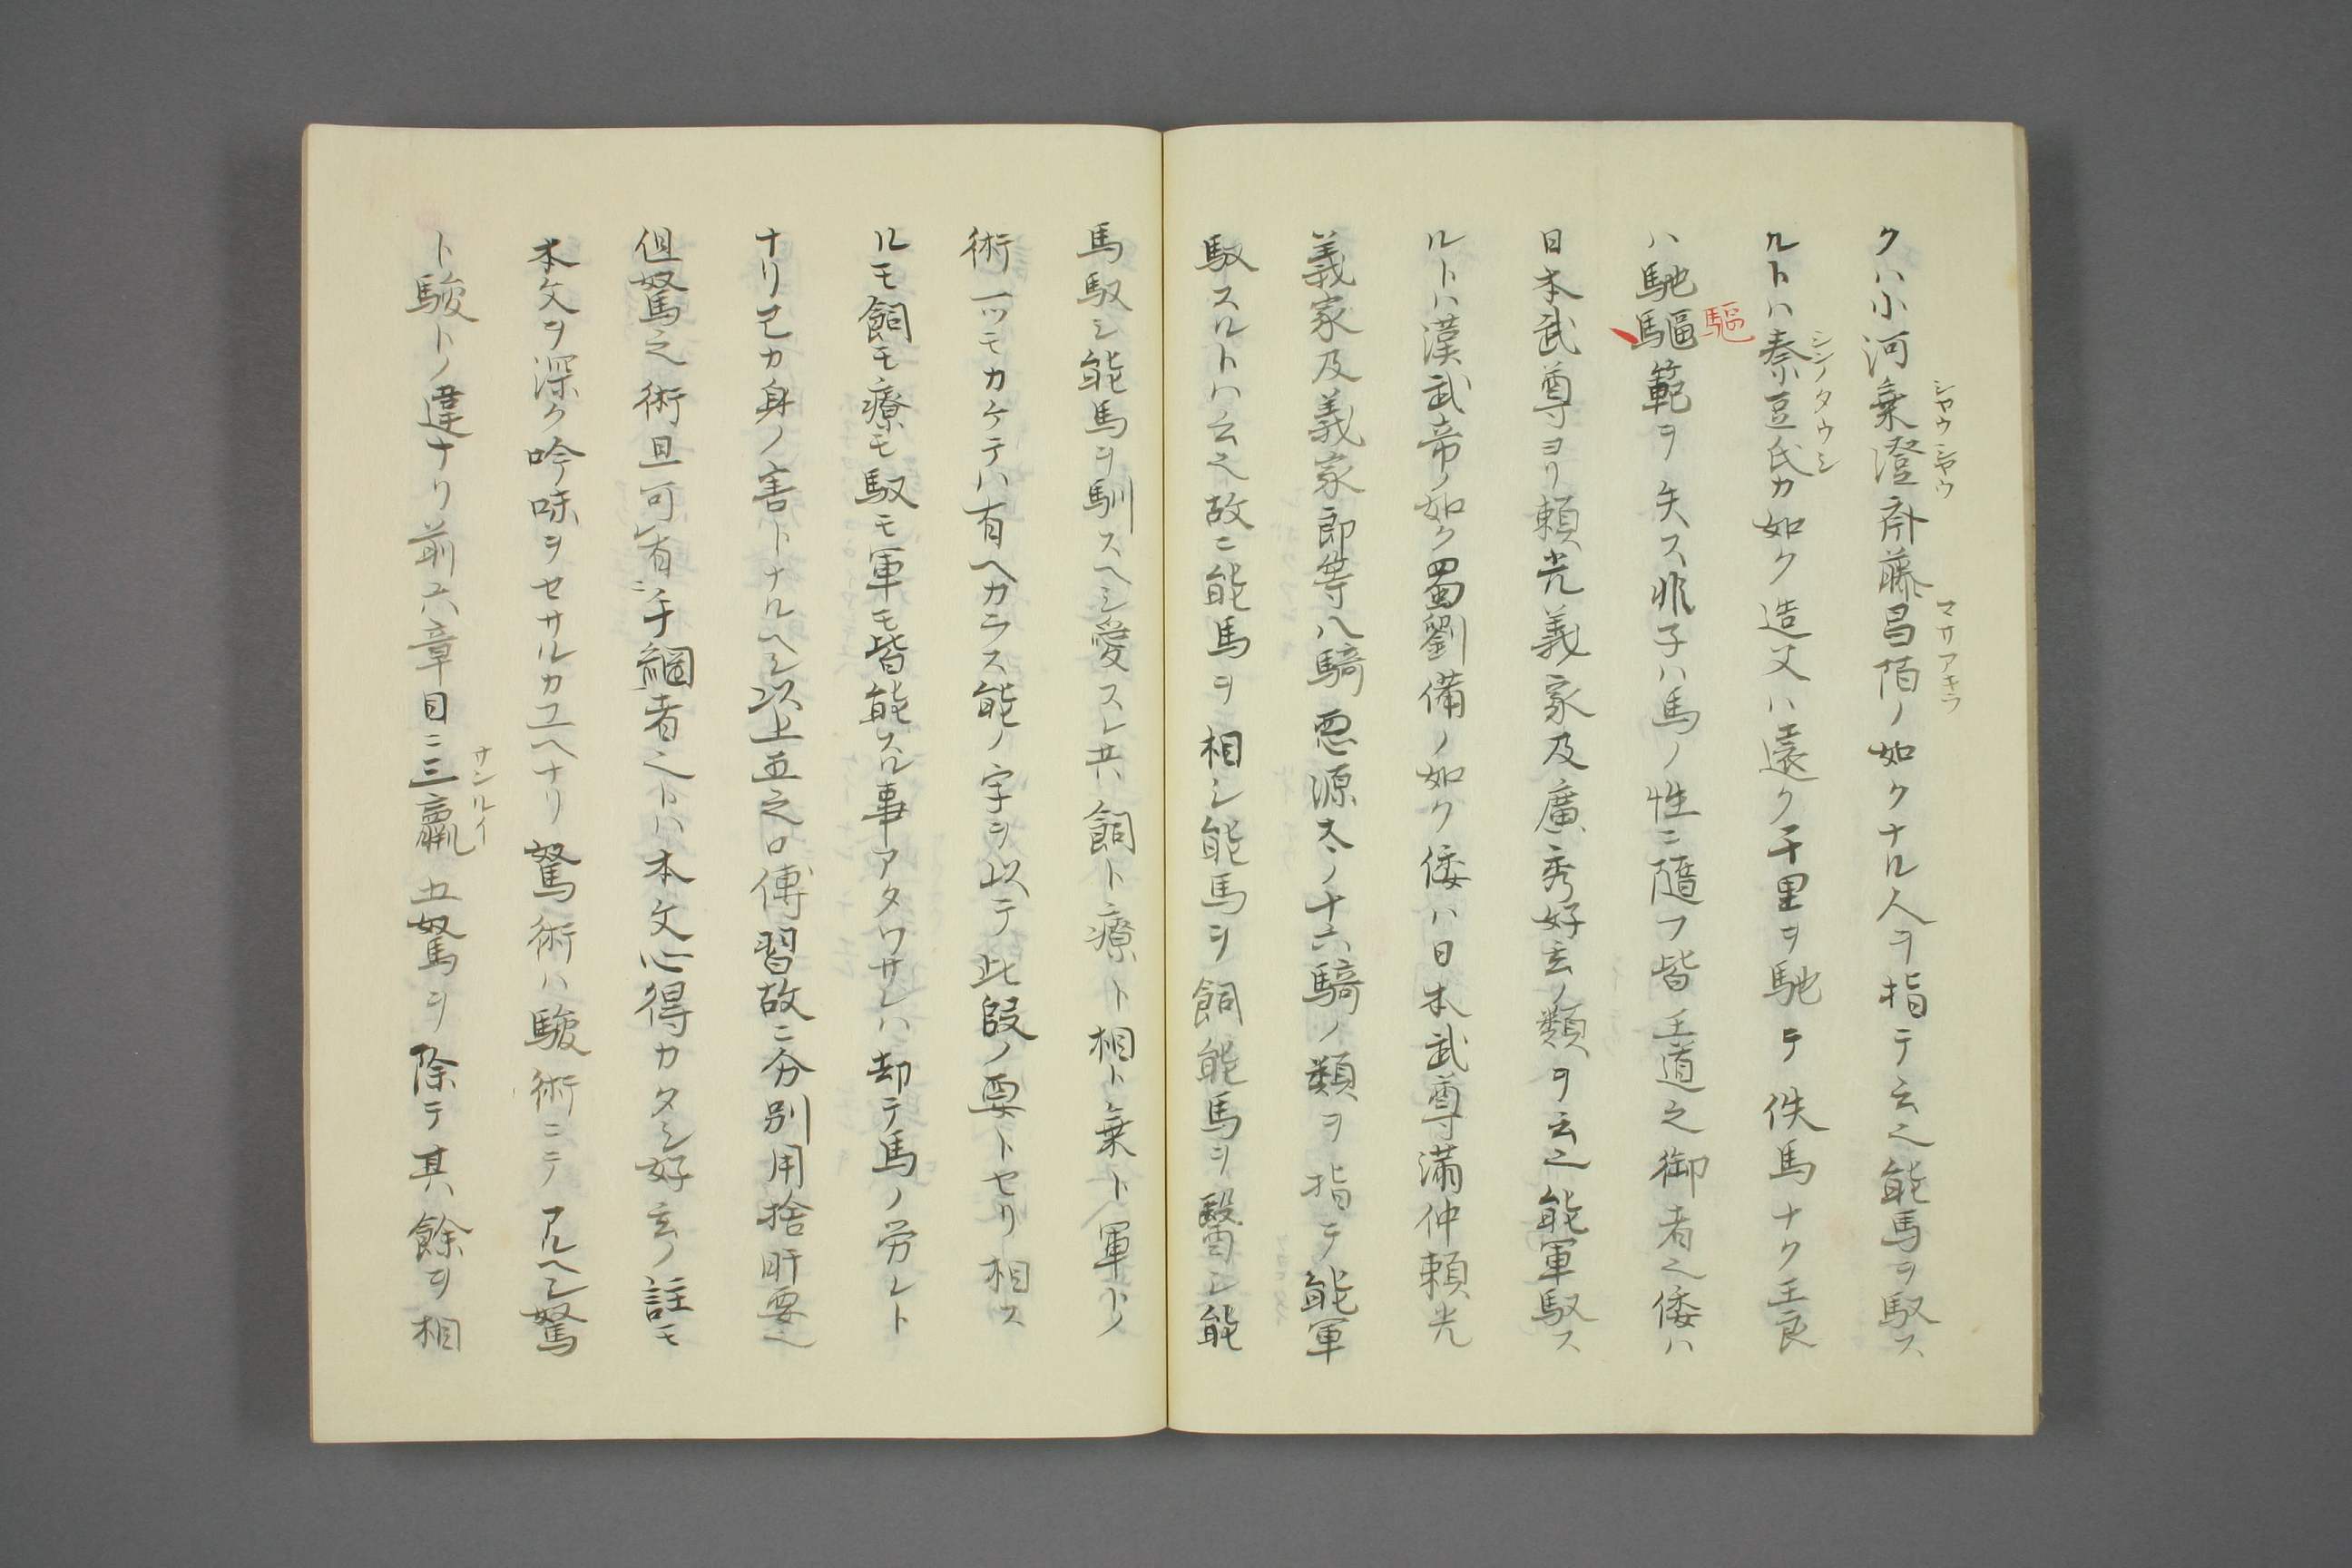 クハ小河乗澄斎藤昌陌ノ如クナル人ヲ指テ云之能馬ヲ馭ス
シヤウシヤウ
マサアキラ
ルトハ秦豆氏カ如ク造父ハ遠ク千里ヲ馳テ佚馬ナク王良
シンノタウシ
ハ馳驅範ヲ失ス非子ハ馬ノ性ニ隨フ皆王道之御者之倭ハ
驅
日本武尊ヨリ頼光義家及廣秀好玄ノ類ヲ云之能軍馭ス
ルトハ漢武帝ノ如ク蜀劉備ノ如ク倭ハ日本武尊満仲頼光
義家及義家郎等八騎悪源太ノ十六騎ノ類ヲ指テ能軍
馭スルトハ云之故ニ能馬ヲ相シ能馬ヲ飼能馬ヲ醫シ能
馬馭シ能馬ヲ馴スヘシ愛スレ共飼ト療ト相ト乗ト軍トノ
術一ツモカケテハ有ヘカラス能ノ字ヲ以テ此段ノ要トセリ相ス
ルモ飼モ療モ馭モ軍モ皆能スル事アタワサレハ却テ馬ノ労レト
ナリ己カ身ノ害トナルヘシ以上並之口傳習故ニ分別用捨肝要之
但駑之術且可有手綱者之トハ本文心得カタシ好玄ノ註モ
本文ヲ深ク吟味ヲセサルカユヘナリ駑術ハ駿術ニテアルヘシ駑
ト駿トノ違ナリ前六章目ニ三羸五駑ヲ除テ其餘ヲ相
サンルイ